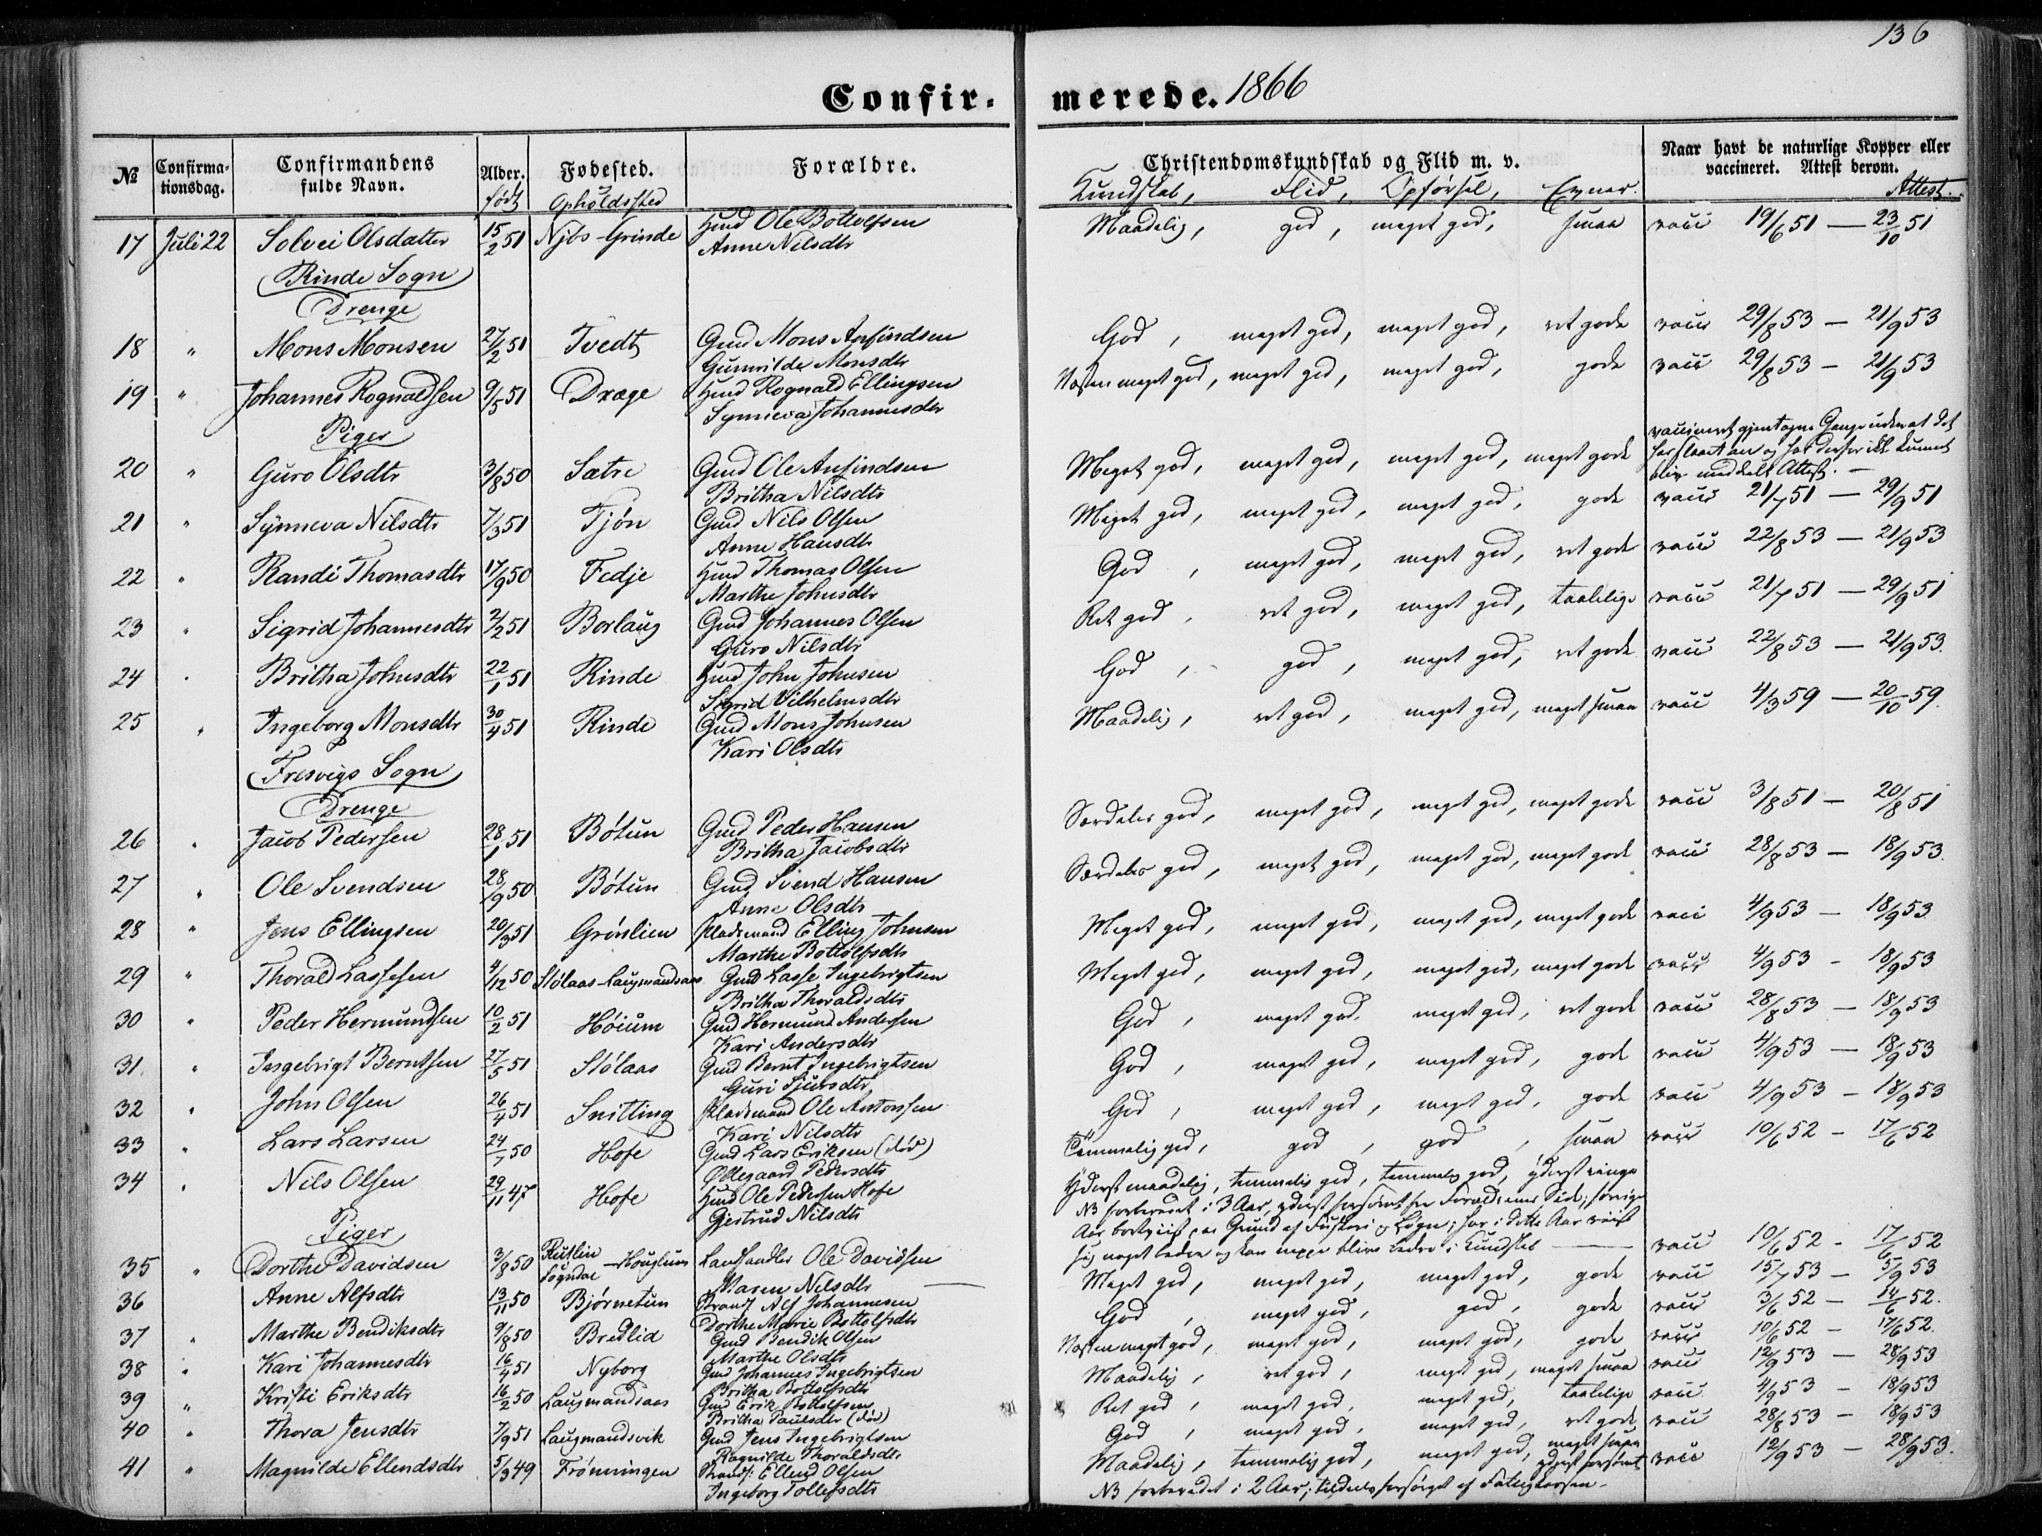 136
Confir- merede. 1866
№ Confirma-tionsdag. Confirmandens fulde Navn. Alder. født Fødested. Opholdssted Forældre. Christendomskundskab og Flid m. v. Kundskab, Flid, Opførsel, Evner. Naar havt de naturlige Kopper eller vaccineret. Attest derom. Attest.
17 Juli 22 Solvei Olsdatter 15/2 51 Njøs-Grinde Huusd Ole Bottolfsen Maadelig, god, meget god, smaa vacc 19/6 51 — 23/10 51
Anne Nilsdtr
Rinde Sogn
Drenge
18 " Mons Monsen 27/2 51 Tvedt Gmd Mons Anfindsen God, meget god, meget god, ret gode vacc 29/8 53 — 21/9 53
Gunnilda Monsdtr
19 " Johannes Rognaldsen 9/5 51 Drage Huusd Rognald Ellingsen Næsten meget god, meget god, meget god, gode vacc 29/8 53 — 21/9 53
Synneva Johannesdtr
Piger
vaccineret gjentagne Gange uden at det
20 " Guro Olsdtr 3/8 50 Sætre Gmd Ole Anfindsen Meget god, meget god, meget god, meget gode har slaaet an og har derfor ikke kunnet
Britha Nilsdtr blive meddelt Attest. —
21 " Synneva Nilsdtr 7/3 51 Tjøn Gmd Nils Olsen Meget god, meget god, meget god, gode vacc 21/7 51 — 29/9 51
Anne Hansdtr
22 " Randi Thomasdtr 17/9 50 Fedje Huusd Thomas Olsen God, meget god, meget god, ret gode vacc 22/8 53 — 21/9 53
Marthe Johnsdtr
23 " Sigrid Johannesdtr 2/2 51 Borlaug Gmd Johannes Olsen Ret god, ret god, meget god, taalelige vacc 21/7 51 — 29/9 51
Guro Nilsdtr
24 " Britha Johnsdtr 22/1 51 Rinde Huusd John Johnsen God, god, meget god, ret gode vacc 22/8 53 — 21/9 53.
Sigrid Vilhelmsdtr
25 " Ingeborg Monsdtr 30/4 51 Rinde Gmd Mons Johnsen Maadelig, ret god, meget god, meget smaa vacc 4/3 59 — 20/10 59.
Kari Olsdtr
Fresvigs Sogn
Drenge
26 " Jacob Pedersen 28/1 51 Bøtun Gmd Peder Hansen Særdeles god, meget god, meget god, meget gode vacc 3/8 51 — 20/8 51
Britha Jacobsdtr
27 " Ole Svendsen 28/9 50 Bøtun Gmd Svend Hansen Særdeles god, meget god, meget god, meget gode vacc 28/8 53 — 18/9 53.
Anne Olsdtr
28 " Jens Ellingsen 20/3 51 Grønlien Pladsmand Elling Johnsen Meget god, meget god, meget god, meget gode vacc 4/9 53 — 18/9 53
Marthe Bottolfsdtr
29 " Thorald Lassesen 4/12 50 Stølaas-Laugmandsaas Gmd Lasse Ingebrigtsen Meget god, meget god, meget god, meget gode vacc 4/9 53 - 18/9 53
Britha Thoraldsdtr
30 " Peder Hermundsen 10/2 51 Høium Gmd Hermund Andersen God, meget god, meget god, ret gode vacc 28/8 53 — 18/9 53
Kari Andersdtr
31. " Ingebrigt Berntsen 27/5 51 Stølaas Gmd Bernt Ingebrigtsen God, meget god, meget god, gode vacc 4/9 53 — 18/9 53
Guri Sjursdtr
32 " John Olsen 26/4 51 Snitting Pladsmand Ole Antonsen God, meget god, meget god, gode vacc 4/9 53 — 18/9 53
Kari Nilsdtr
33 " Lars Larsen 24/7 50 Hofe Gmd Lars Eriksen (død) Temmelig god, god, god, smaa vacc 10/6 52 - 17/6 52
Oddegaard Pedersdtr
34 " Nils Olsen 29/11 47 Hofe Huusd Ole Pedersen Hofe Yderst maadelig, temmelig god, temmelig god, yderst ringe
Gjertrud Nilsdtr NB forberedet i 3 Aar, yderst forsømt fra Forældrenes Side; forrige
Aar bortviist paa Grund af Fuskeri og Løgn; har i dette Aar viist
Piger sig noget bedre og kan neppe blive bedre i Kundskab — vacc 10/6 52 - 17/6 52
35 " Dorthe Davidsen 3/8 50 Rutlin Sogndal — Houglum Landhandler Ole Davidsen Meget god, meget god, meget god, gode vacc 15/7 53 — 5/9 53
Maren Nilsdtr
36 Anne Alfsdtr 13/11 50 Bjørnetun Strands. Alf Johannesen God, meget god, god, gode vacc 3/6 52 — 14/6 52.
Dorthe Marie Bottolfsdtr
37 " Marthe Bendiksdtr 9/8 50 Bredlid Gmd Bendik Olsen Næsten meget god, meget god, meget god, gode vacc 10/6 52 - 17/6 52.
Marthe Olsdtr
38 " Kari Johannesdtr 16/4 51 Nyborg Gmd Johannes Ingebrigtsen Maadelig, ret god, meget god, meget smaa vacc 12/9 53 — 28/9 53
Britha Bottolfsdtr
39 " Kristi Eriksdtr 16/2 50 Laugmandsaas Gmd Erik Bottolfsen Ret god, meget god, meget god, taalelige vacc 4/9 53 - 18/9 53
Britha Paulsdtr (død)
40 " Thora Jensdtr 7/9 51 Laugmandsvik Gmd Jens Ingebrigtsen God, meget god, meget god, ret gode vacc 28/8 53 — 18/9 53
Ragnilde Thoraldsdtr
41 " Magnilde Ellendsdtr 5/3 49 Frønningen Strands. Ellend Olsen Maadelig, temmelig god, meget god, meget smaa vacc 12/9 53 — 28/9 53.
Ingeborg Tollefsdtr yderst forsømt
NB forberedet i 2 Aar; tildeels forsørget af Fattigkassen.